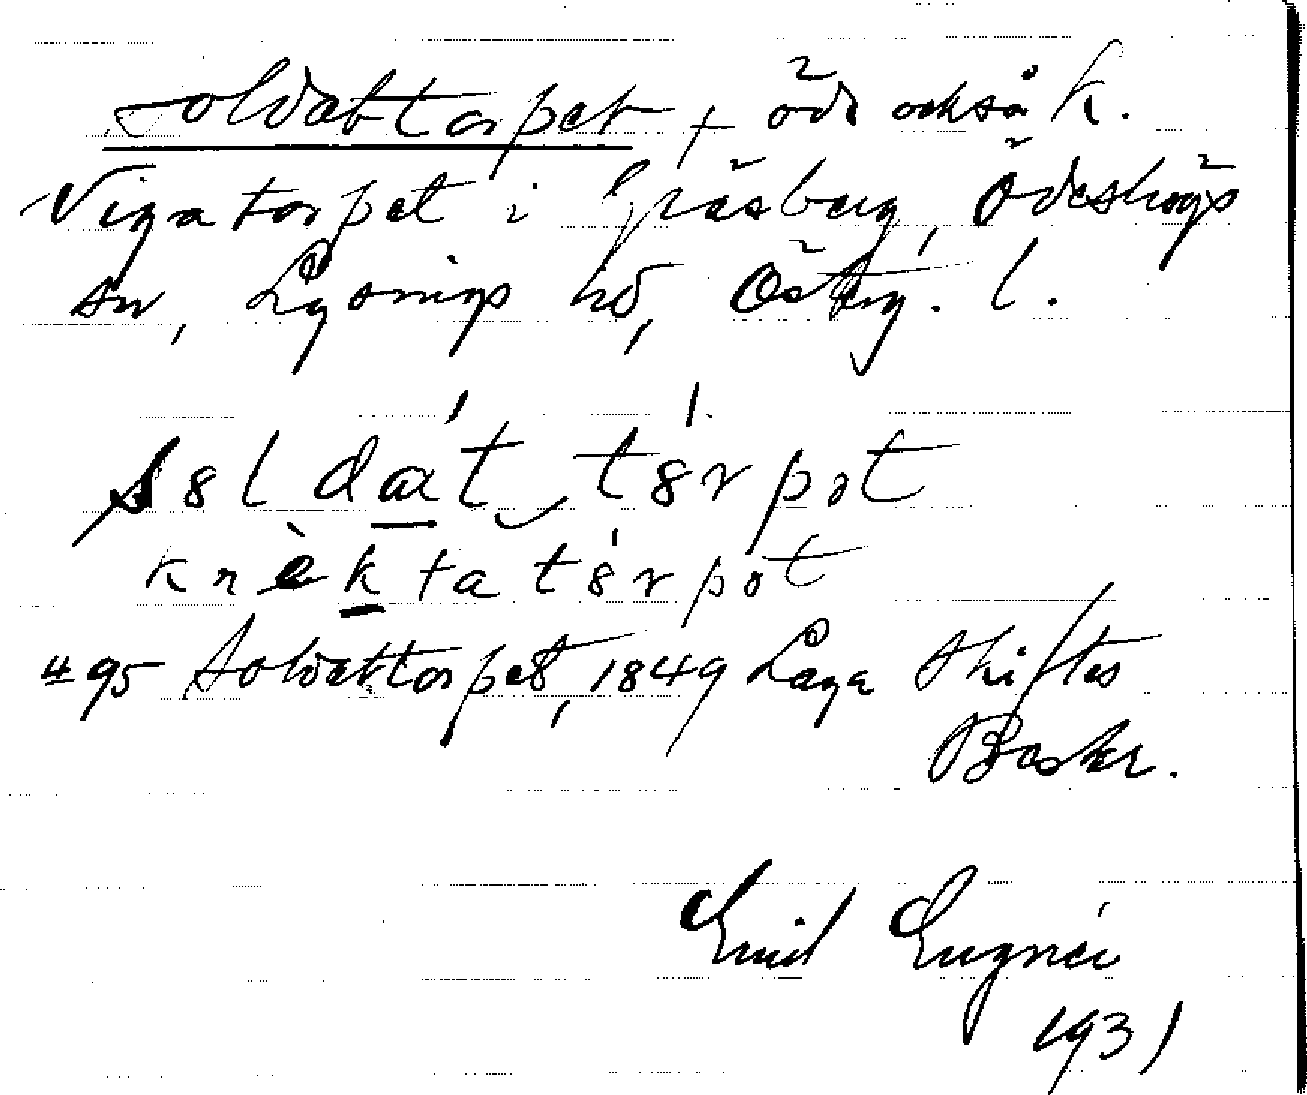 Soldattorpet, + öde också k.
Vigatorpet i Gräsberg, Ödeshögs
sn, Lysings hd, Österg. l.
s8ldat t8rpət
knèkta t8rpət
495 Soldattorpet, 1849 Laga Skiftes
Beskr.
Emil Lugnér
1931